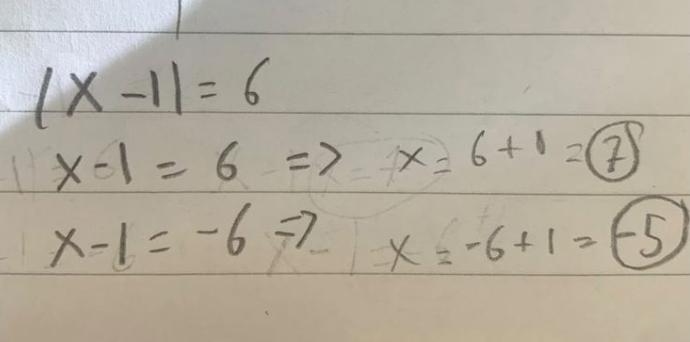 |x-1| = 6
x-1 = 6 => x = 6+1 = 7
x-1 = -6 => x = -6+1 = -5